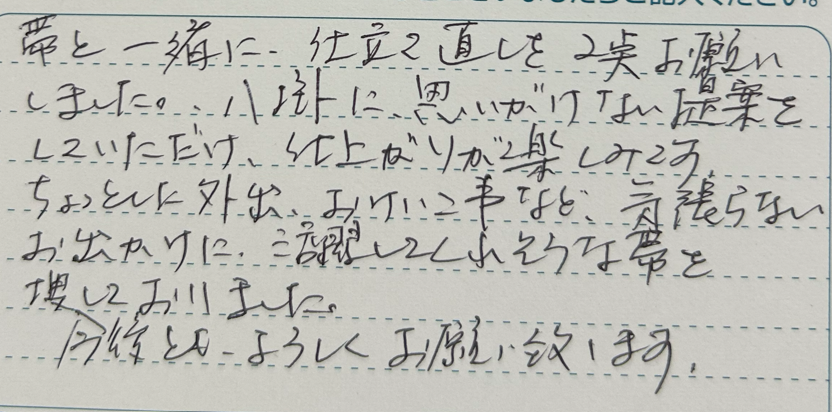 ご記入ください。
帯と一緒に、仕立て直しを2点お願い
しました。八掛に、思いがけない提案を
していただけ、仕上がりが楽しみです。
ちょっとした外出、おけいこ事など、気張らない
お出かけに、活躍してくれそうな帯を
探しておりました。
今後とも、よろしくお願い致します。